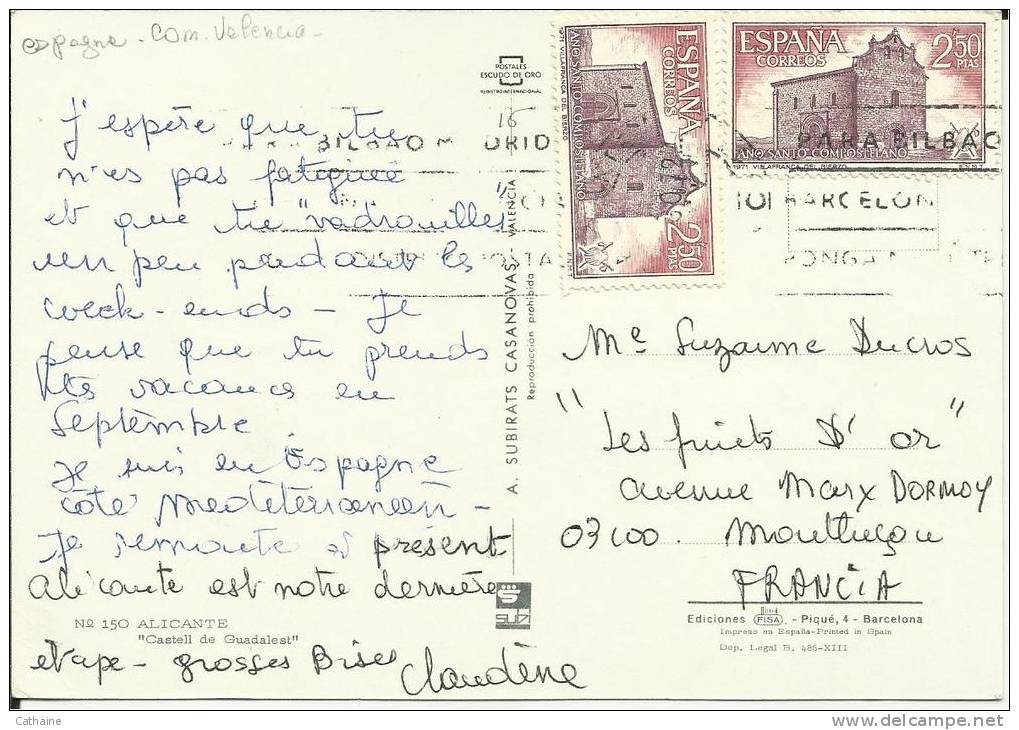 espagne - Com. Valencia -
POSTALES
ESCUDO DE ORO
REGISTRO INTERNACIONAL
ESPAÑA
CORREOS
2'50
PTAS
AÑO SANTO COMPOSTELANO
1971 VILLAFRANCA DEL BIERZO
ESPAÑA
CORREOS
2'50
PTAS
AÑO SANTO COMPOSTELANO
1971 VILLAFRANCA DEL BIERZO F.N.M.T.
16
BILBAO
PARA BILBAO
BARCELON
PONGA
J'espère que tu
n'es pas fatiguée
et que tu "vadrouilles"
un peu pendant les
week-ends - Je
pense que tu prends
tes vacances en
Septembre.
Je suis en Espagne
côté Mediterranéen -
Je remonte à présent
Alicante est notre dernière
etape - grosses Bises
Claudène
A. SUBIRATS CASANOVAS - VALENCIA
Reproducción prohibida
Me Suzanne Ducros
"Les fruits d'or"
avenue Marx DORMOY
03100. Montluçon
FRANCIA
Nº 150 ALICANTE
"Castell de Guadalest"
subi
Ediciones FISA. - Piqué, 4 - Barcelona
Impreso en España-Printed in Spain
Dep. Legal B. 486-XIII
Cathaine
delcampe.net